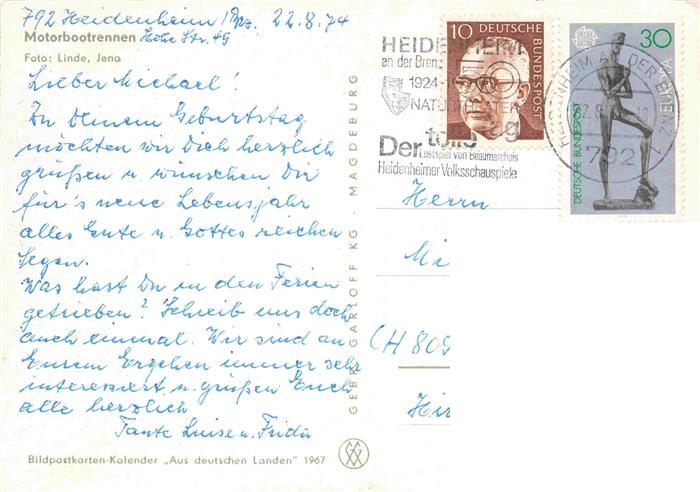 792 Heidenheim/Brz, 22.8.74
Motorbootrennen Hohe Str. 49
Foto: Linde, Jena
Lieber Michael!
Zu Deinem Geburtstag
möchten wir Dich herzlich
grüßen u. wünschen Dir
für's neue Lebensjahr
alles Gute u. Gottes reichen
Segen.
Was hast Du in den Ferien
getrieben? Schreib uns doch
auch einmal. Wir sind an
Eurem Ergehen immer sehr
interessiert u. grüßen Euch
alle herzlich
Tante Luise u. Frida
Bildpostkarten-Kalender „Aus deutschen Landen" 1967
GEBR. GARLOFF KG · MAGDEBURG
HEIDENHEIM
an der Brenz
1924-
NATURTHEATER
Der tolle Tag
Lustspiel von Beaumarchais
Heidenheimer Volksschauspiele
10
DEUTSCHE BUNDESPOST
30
EUROPA
DEUTSCHE BUNDESPOST
HEIDENHEIM AN DER BRENZ
792
Herrn
Mi
CH 809
Hir